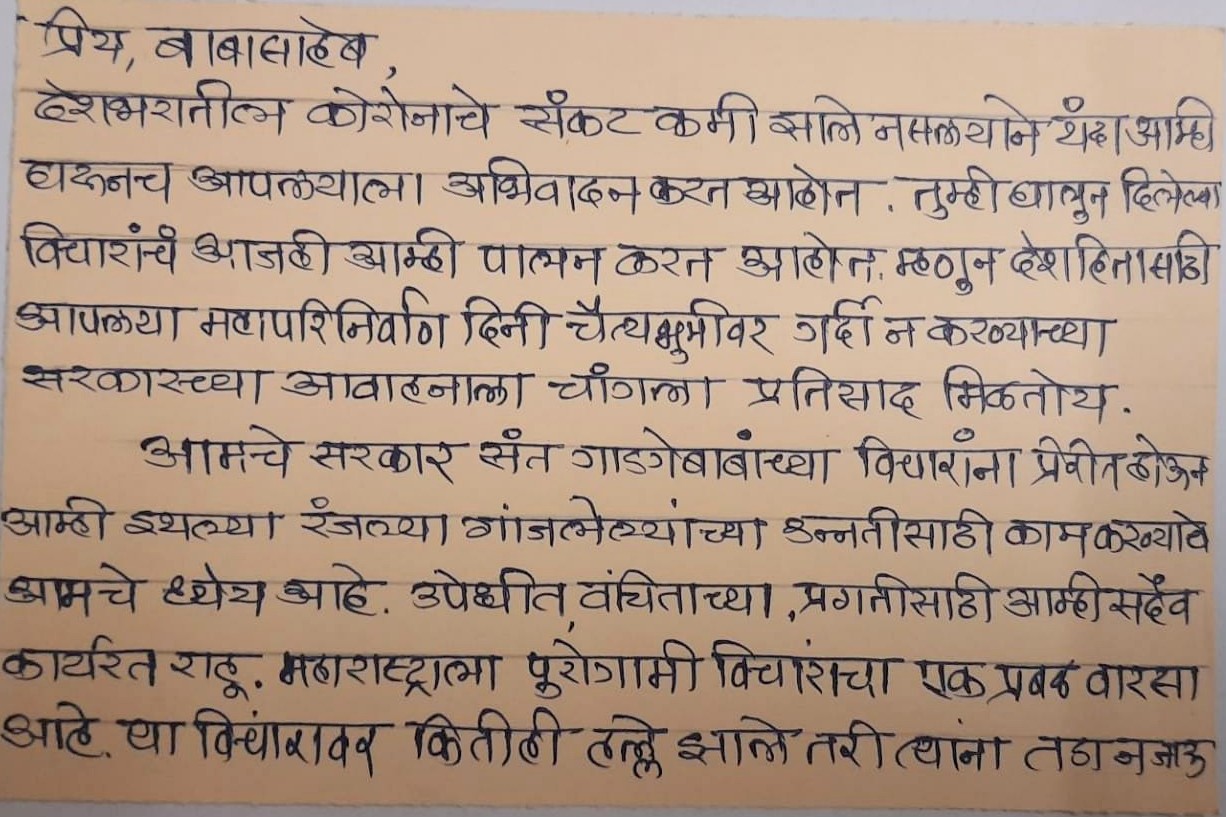 प्रिय, बाबासाहेब,
देशभरातील कोरोनाचे संकट कमी झाले नसल्याने यंदा आम्ही
घरूनच आपल्याला अभिवादन करत आहोत. तुम्ही घालून दिलेल्या
विचारांचं आजही आम्ही पालन करत आहोत. म्हणून देशहितासाठी
आपल्या महापरिनिर्वाण दिनी चैत्यभुमीवर गर्दी न करण्याच्या
सरकारच्या आवाहनाला चांगला प्रतिसाद मिळतोय.
आमचे सरकार संत गाडगेबाबांच्या विचारांना प्रेरीत होऊन
आम्ही इथल्या रंजल्या गांजलेल्यांच्या उन्नतीसाठी काम करण्याचे
आमचे ध्येय आहे. उपेक्षीत, वंचिताच्या, प्रगतीसाठी आम्ही सदैव
कार्यरत राहू. महाराष्ट्राला पुरोगामी विचारांचा एक प्रबळ वारसा
आहे. या विचांरावर कितीही हल्ले झाले तरी त्यांना तडा न जाऊ